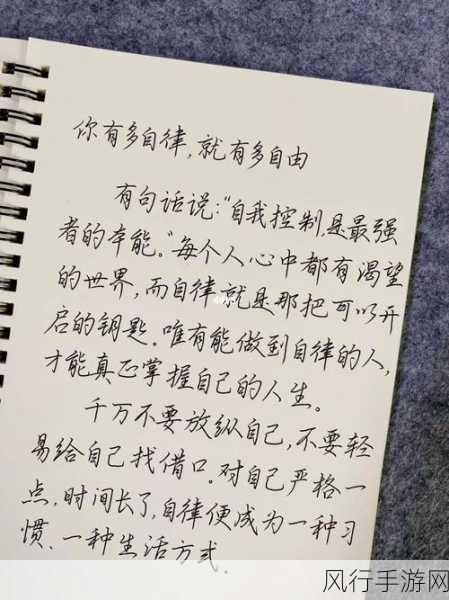 你有多自律,就有多自由
有句话说:"自我控制,是最强
者的本能。"每个人心中都有渴望
的世界,而自律就是那把可以开
启的钥匙。唯有能做到自律的人,
才能真正掌握自己的人生。
千万不要放纵自己,不要轻
易给自己找借口。对自己严格一
点,时间长了,自律便成为一种习
惯、一种生活方式.
风行手游网